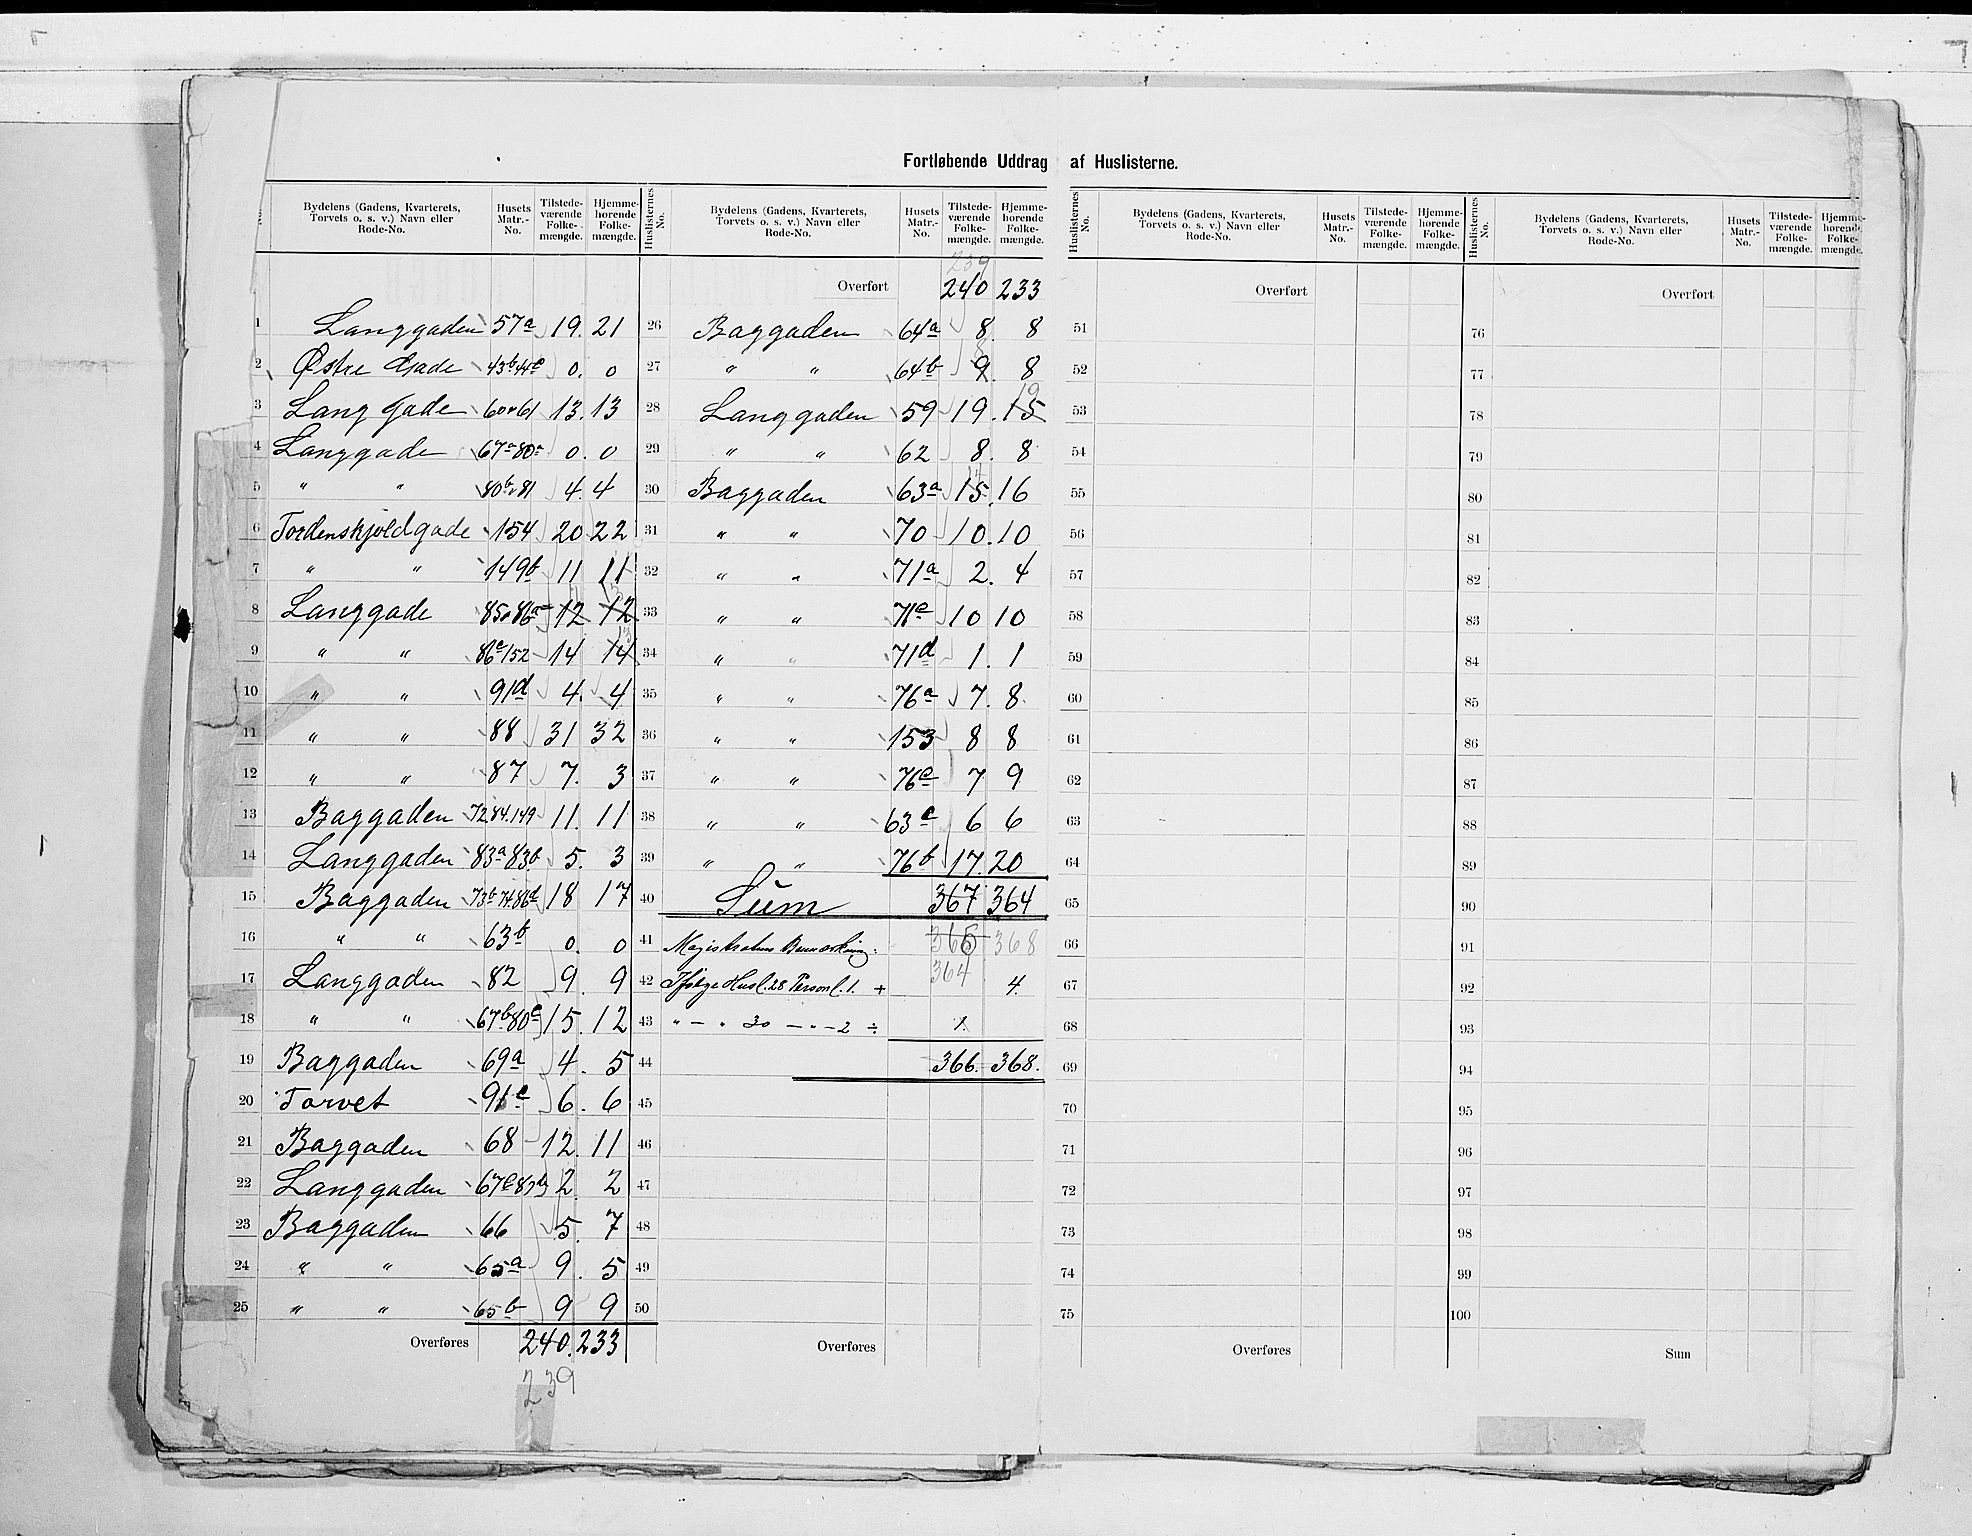 Fortløbende Uddrag af Huslisterne.
Bydelens (Gadens, Kvarterets, Torvets o. s. v.) Navn eller Rode-No. Husets Matr.-No. Tilstedeværende Folkemængde. Hjemmehørende Folkemængde.
1 Langgaden 57a 19. 21
2 Østre Gade 43b 44c 0. 0
3 Lang Gade 60 61 13. 13
4 Langgade 67a 80a 0. 0
5 " " 80b 81 4. 4
6 Tordenskjoldgade 154 20 22
7 " " 149b 11 11
8 Langgade 85 86a 12 12
9 " " 86c 152 14 14
10 " " 91d 4. 4
11 " " 88 31 32
12 " " 87 7. 3
13 Baggaden 72.84.149 11. 11
14 Langgaden 83a 83b 5. 3
15 Baggaden 73b 74 86d 18 17
16 " " 63b 0. 0
17 Langgaden 82 9. 9
18 " " 67b 80c 15. 12
19 Baggaden 69a 4. 5
20 Torvet 91c 6. 6
21 Baggaden 68 12. 11
22 Langgaden 67c 2. 2
23 Baggaden 66 5. 7
24 " " 65a 9. 5
25 " " 65b 9 9
Overføres 240. 233
239
Huslisternes No. Bydelens (Gadens, Kvarterets, Torvets o. s. v.) Navn eller Rode-No. Husets Matr.-No. Tilstedeværende Folkemængde. Hjemmehørende Folkemængde.
239
Overført 240 233
26 Baggaden 64a 8. 8
27 " " 64b 9. 8
19
28 Langgaden 59 19. 15
29 " " 62 8. 8
14
30 Baggaden 63a 15. 16
31 " " 70 10. 10
32 " " 71a 2. 4
33 " " 71c 10 10
34 " " 71d 1. 1
35 " " 76a 7. 8.
36 " " 153 8 8
37 " " 76c 7 9
38 " " 63c 6 6
39 " " 76b 17. 20
40 Sum 367 364
41 Magistratens Bemærkning: 366 368
364
42 Ifølge Husl. 28 Personl. 1. + 4.
43 " — " 30 — " — 2 ÷
44 366. 368.
45
46
47
48
49
50
Overføres
Huslisternes No. Bydelens (Gadens, Kvarterets, Torvets o. s. v.) Navn eller Rode-No. Husets Matr.-No. Tilstedeværende Folkemængde. Hjemmehørende Folkemængde.
Overført
51
52
53
54
55
56
57
58
59
60
61
62
63
64
65
66
67
68
69
70
71
72
73
74
75
Overføres
Huslisternes No. Bydelens (Gadens, Kvarterets, Torvets o. s. v.) Navn eller Rode-No. Husets Matr.-No. Tilstedeværende Folkemængde. Hjemmehørende Folkemængde.
Overført
76
77
78
79
80
81
82
83
84
85
86
87
88
89
90
91
92
93
94
95
96
97
98
99
100
Sum